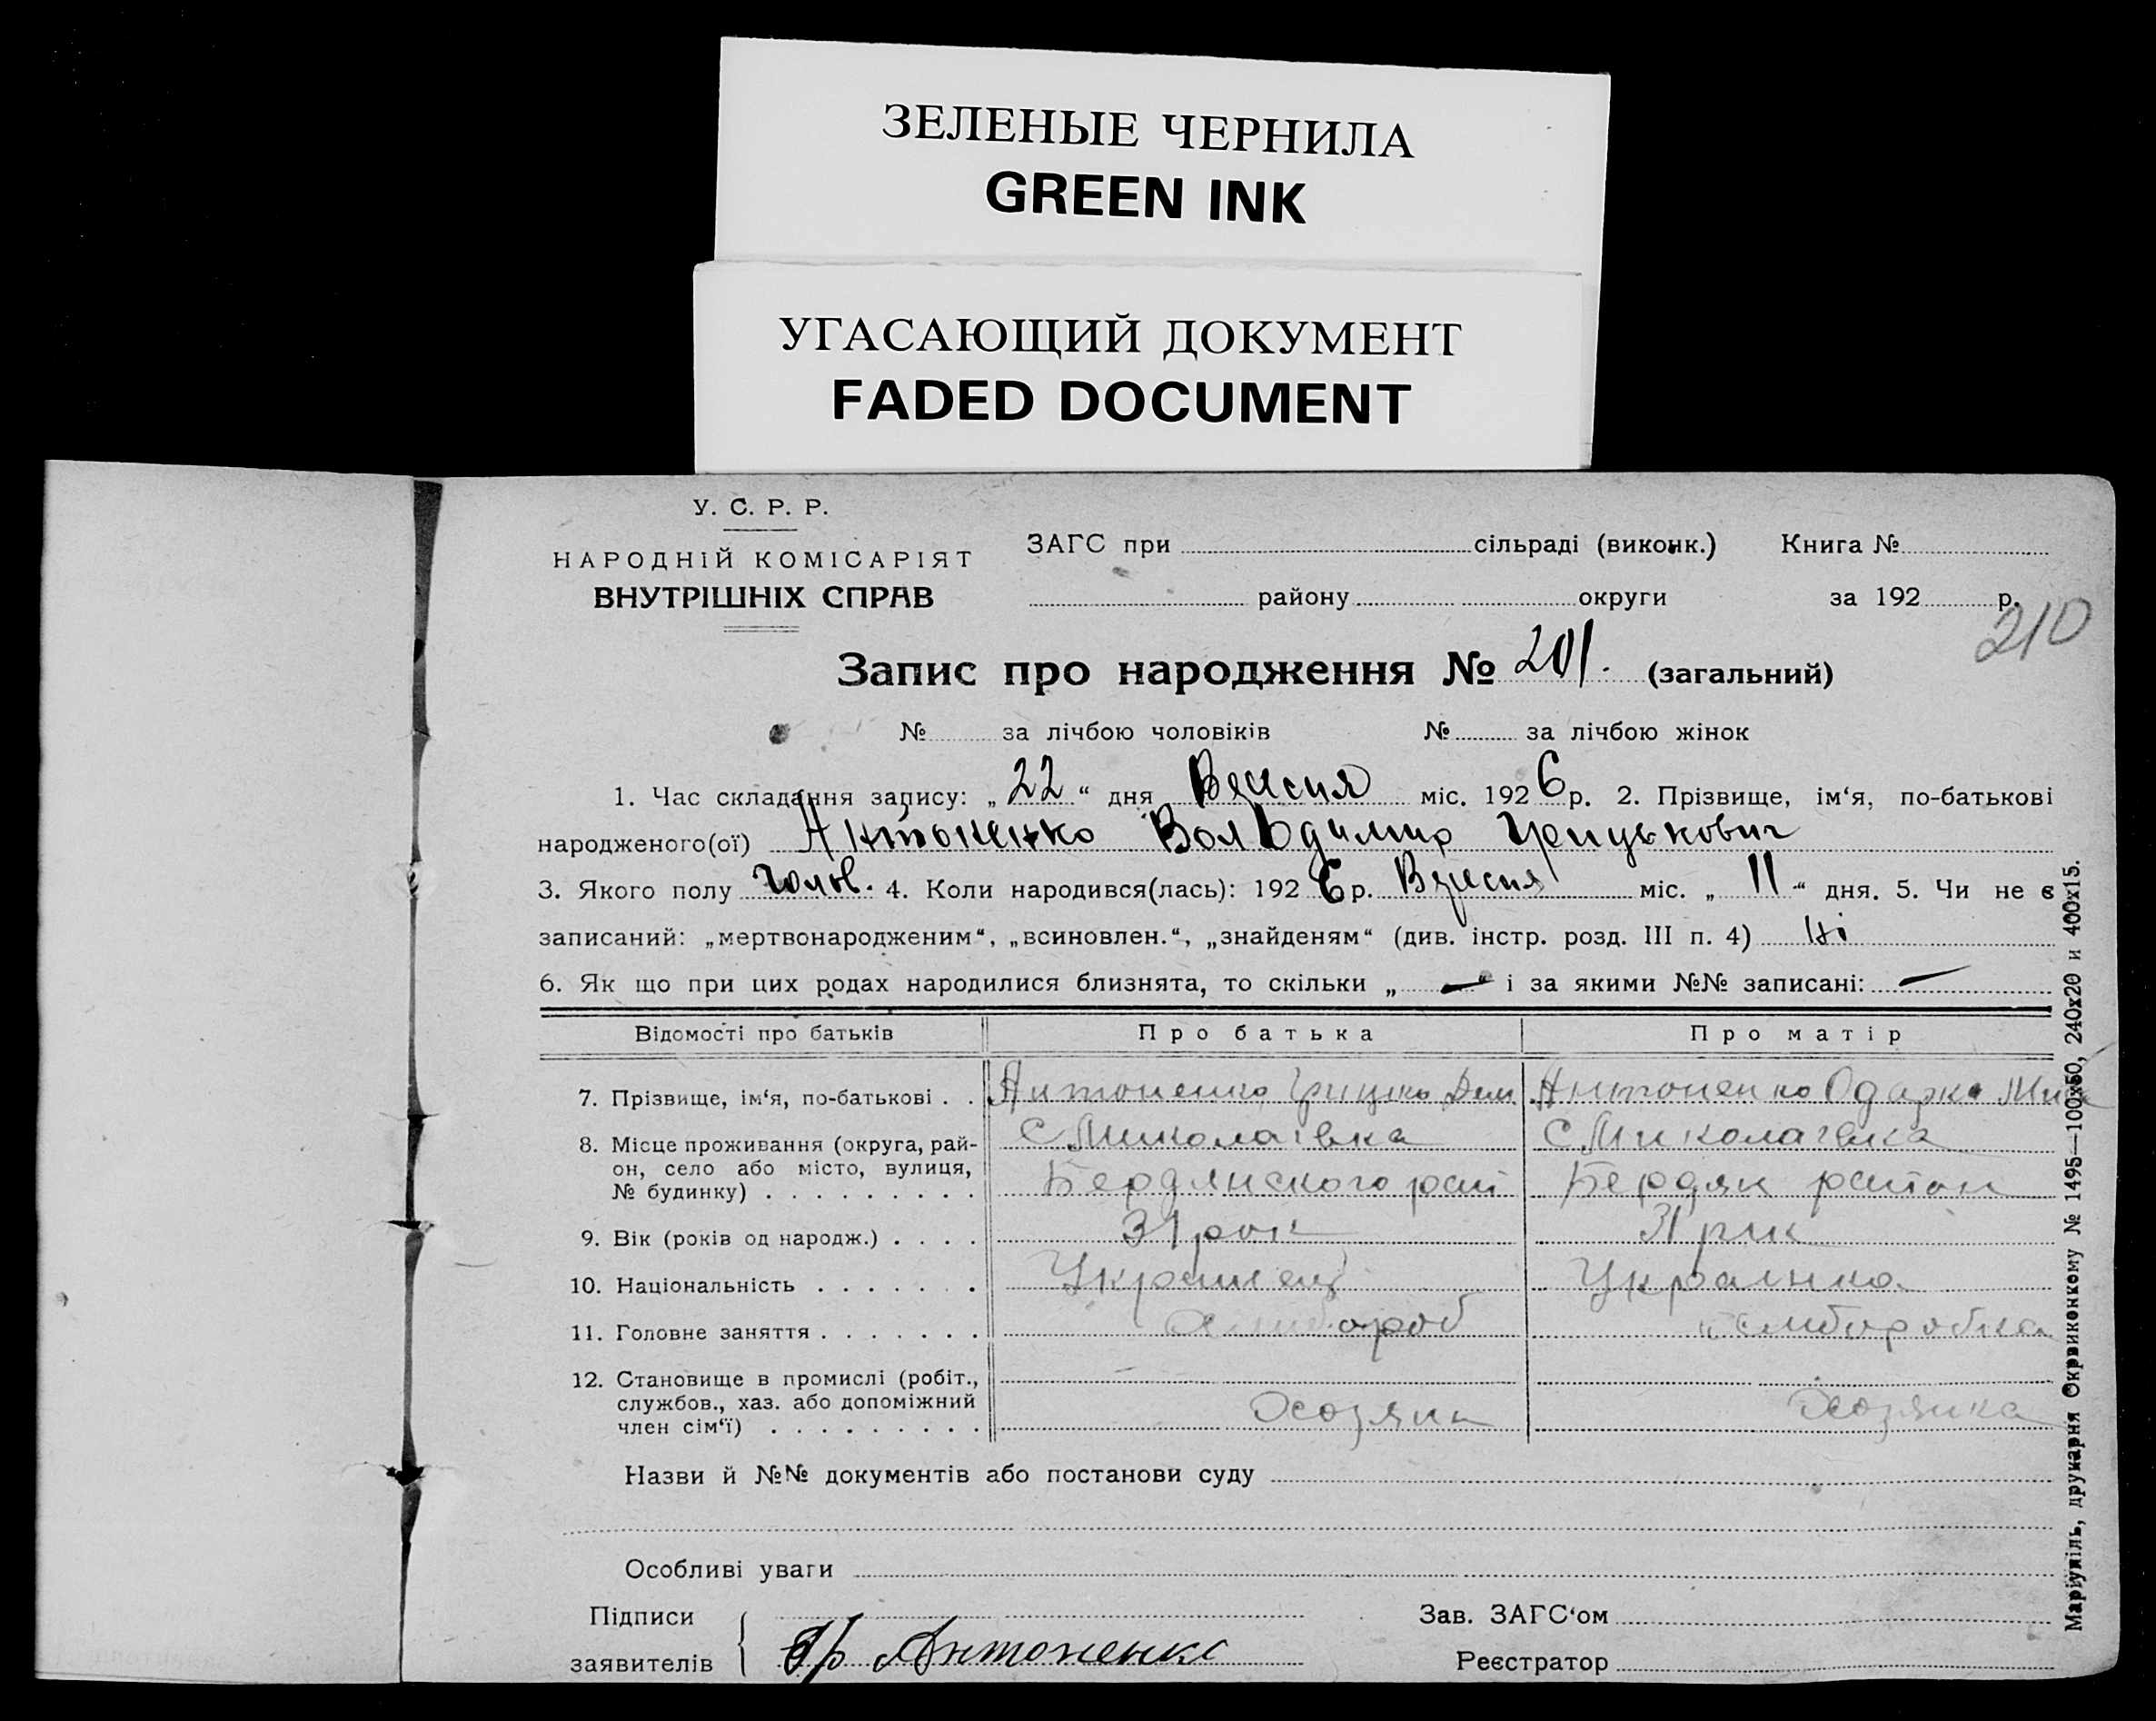 ЗЕЛЕНЫЕ ЧЕРНИЛА
GREEN INK
УГАСАЮЩИЙ ДОКУМЕНТ
FADED DOCUMENT
У. С. Р. Р.
НАРОДНІЙ КОМІСАРІЯТ
ВНУТРІШНІХ СПРАВ
ЗАГС при сільраді (виконк.) Книга №
району округи за 192 р.
210
Запис про народження № 201. (загальний)
№ за лічбою чоловіків № за лічбою жінок
1. Час складання запису: „22“ дня Вересня міс. 1926 р. 2. Прізвище, ім‘я, по-батькові
народженого(ої) Антоненко Володимир Грицькович
3. Якого полу чолов. 4. Коли народився(лась): 1926 р. Вересня міс. „11“ дня. 5. Чи не є
записаний: „мертвонародженим“, „всиновлен.“, „знайденям“ (див. інстр. розд. III п. 4) ні
6. Як що при цих родах народилися близнята, то скільки „—“ і за якими №№ записані: —
Відомості про батьків Про батька Про матір
7. Прізвище, ім‘я, по-батькові . . Антоненко Грицько Дем Антоненко Одарка Мих
8. Місце проживання (округа, рай- С Миколаївка С Миколаївка
он, село або місто, вулиця,
№ будинку) . . . . . . . . . Бердянского рай Бердян район
9. Вік (років од народж.) . . . . 31 рок 31 рик
10. Національність . . . . . . . Украинец Украинка
11. Головне заняття . . . . . . . хлибороб хлиборобка
12. Становище в промислі (робіт.,
службов., хаз. або допоміжний Хозяин Хозяика
член сім‘ї) . . . . . . . . .
Назви й №№ документів або постанови суду
Особливі уваги
Підписи Зав. ЗАГС‘ом
заявителів Гр Антоненко Реєстратор
Маріупіль, друкарня Окрвиконкому № 1495—100х50, 240х20 и 400х15.